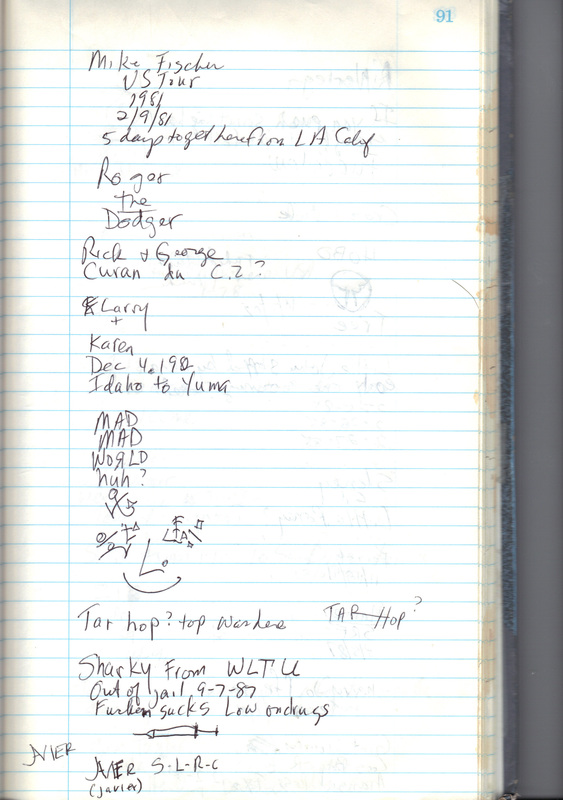 91
Mike Fischer
US Tour
1981
2/9/81
5 days to get here from LA Calif
Roger
the
Dodger
Rick & George
Curan du C.Z ?
Larry
+
Karen
Dec 4, 198
Idaho to Yuma
MAD
MAD
WORLD
huh ?
Tar hop? top wandere TAR Hop ?
Sharky From WLTU
Out of jail 9-7-87
sucks Low on drugs
JAVIER
JAVIER S-L-R-C
(javier)